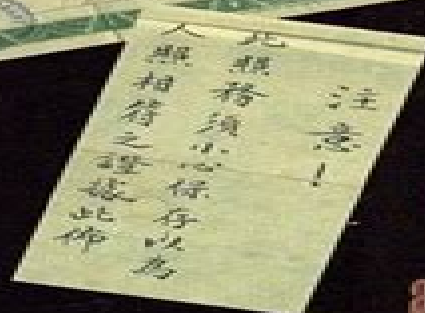 注意！
此照務須小心保存以為
人照相符之證據此佈